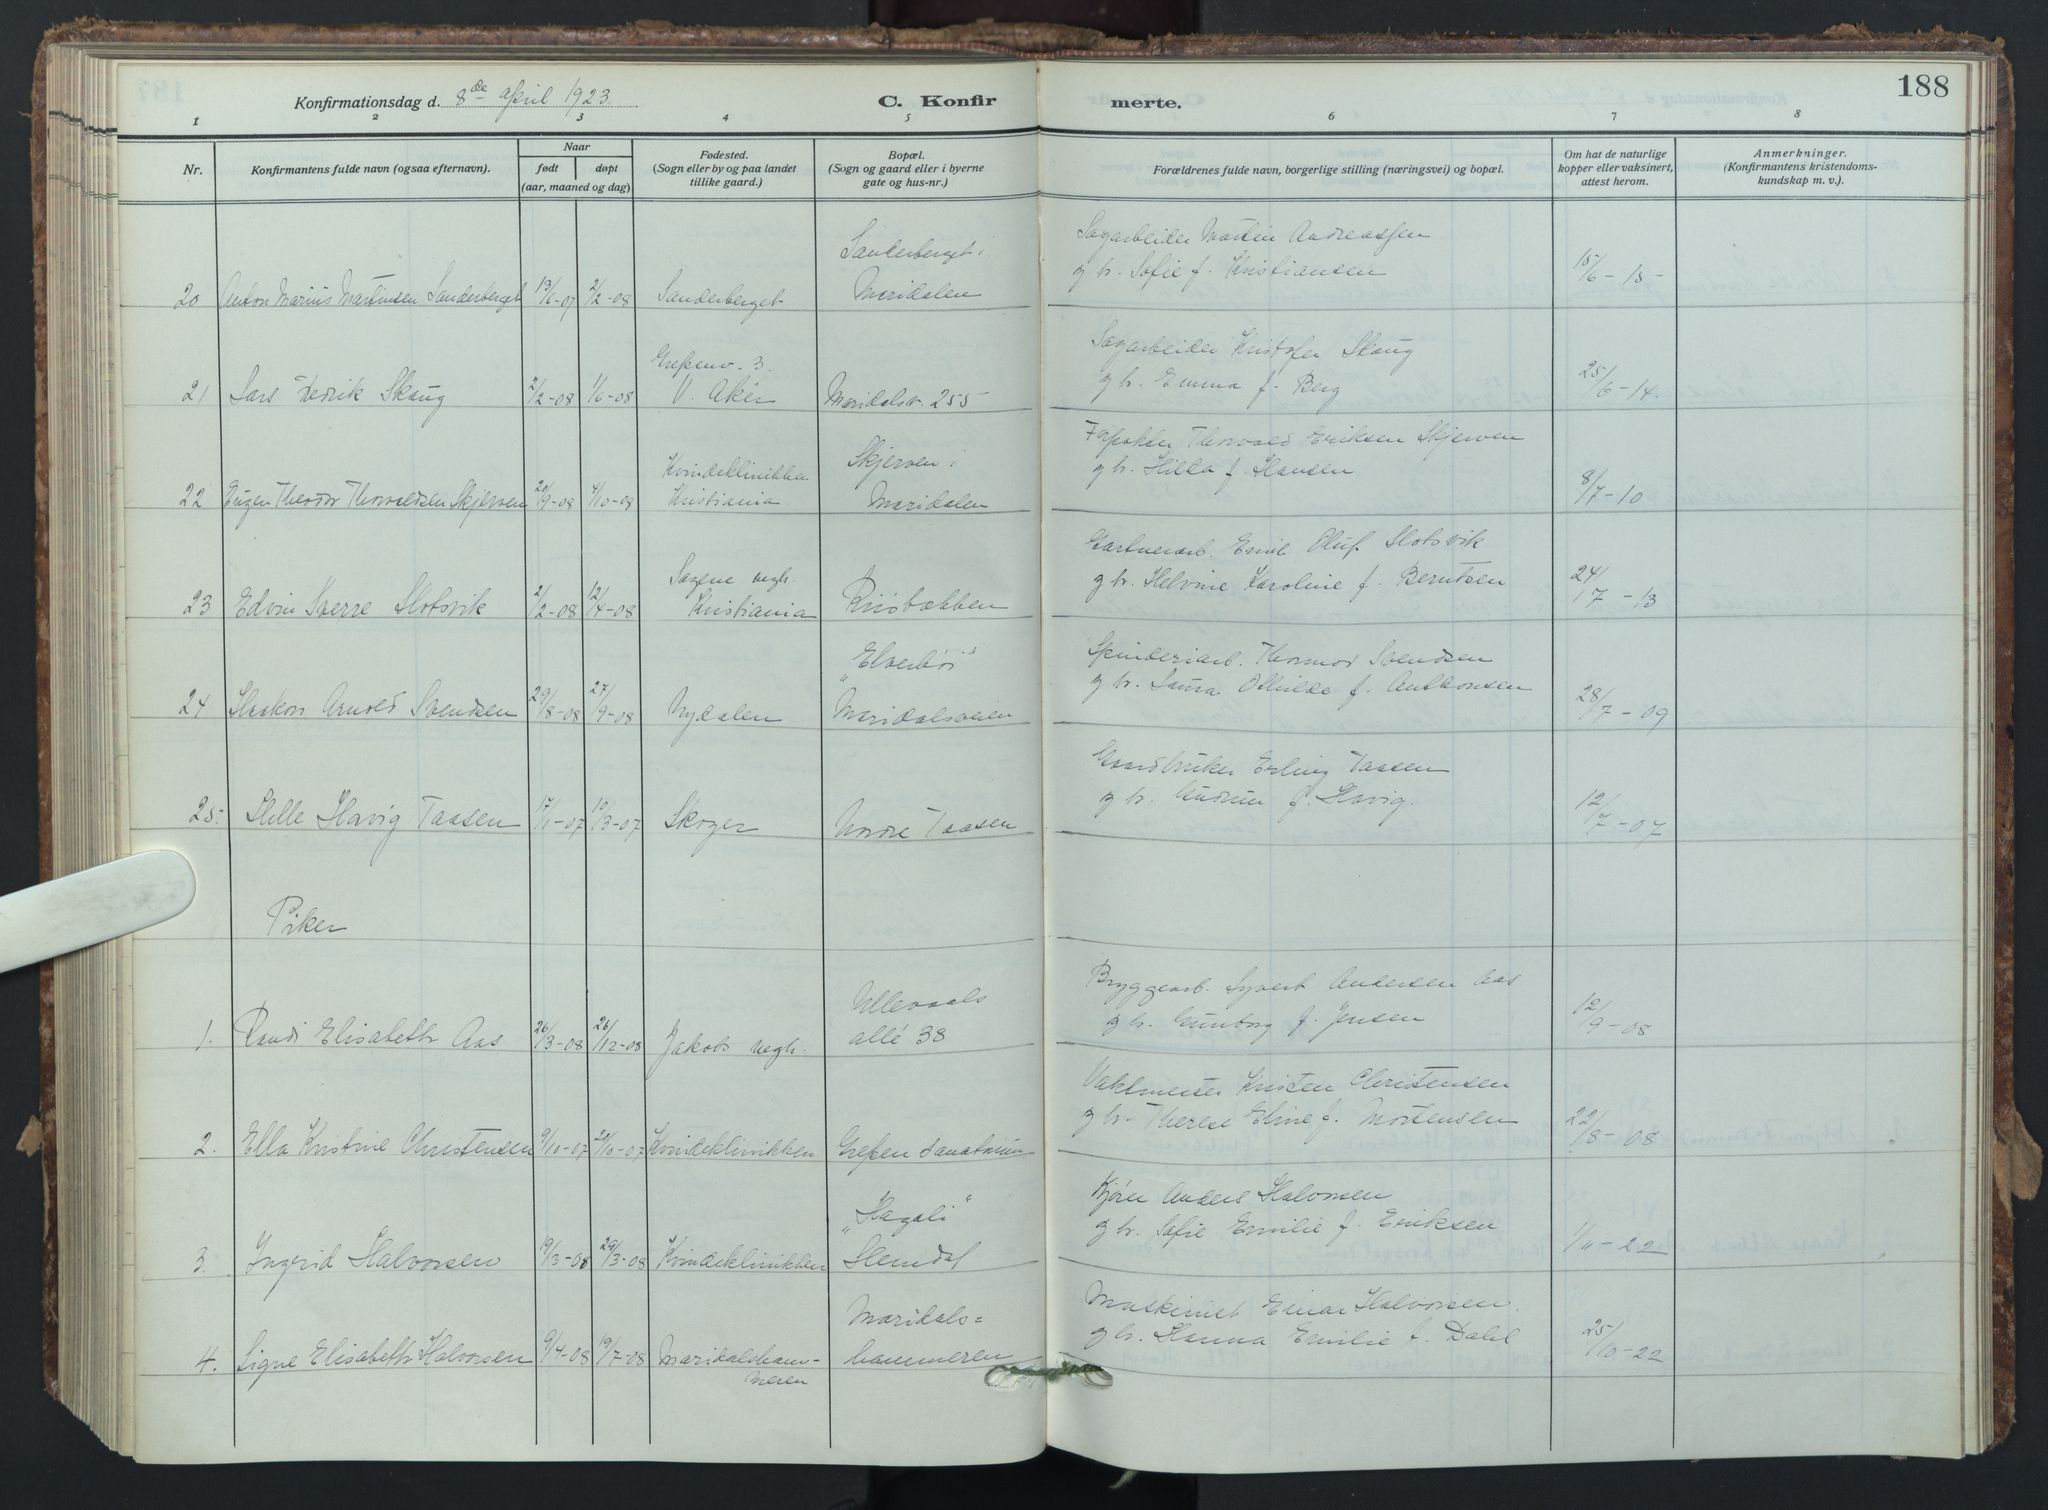 188
Konfirmationsdag d. 8de april 1923.
C. Konfirmerte.
1 2 3 4 5 6 7 8
Nr.
Konfirmantens fulde navn (ogsaa efternavn).
Naar
født
døpt
(aar, maaned og dag)
Fødested.
(Sogn eller by og paa landet
tillike gaard.)
Bopæl.
(Sogn og gaard eller i byerne
gate og hus-nr.)
Forældrenes fulde navn, borgerlige stilling (næringsvei) og bopæl.
Om hat de naturlige
kopper eller vaksinert,
attest herom.
Anmerkninger.
(Konfirmantens kristendoms-
kundskap m. v.).
Sanderberget i Sagarbeider Martin Andreassen
20 Anton Marius Martinsen Sanderberget 13/6-07 2/2-08 Sanderberget Maridalen g hr. Sofie f. Kristiansen 15/6-15
Grefsenv. 3. Sagarbeider Kristofer Skaug
21 Lars Fredrik Skaug 2/2-08 1/6-08 V. Aker Maridalsv. 255 g hr. Emma f. Berg 25/6-14.
Kvindeklinikken Skjerven i Forpakter Thorvald Eriksen Skjerven
22 Eugen Theodor Thorvaldsen Skjerven 20/9-08 4/10-08 Kristiania Maridalen g hr. Hilda f. Hansen 8/7-10
Sagene megh. Gartnerarb. Emil Oluf Slotsvik
23 Edvin Sverre Slotsvik 2/2-08 12/4-08 Kristiania Risbækken g hr. Helvine Karoline f. Berntsen 24/7-13
"Elverhöi" Spinderiarb. Thormod Svendsen
24 Haakon Arnold Svendsen 29/8-08 27/9-08 Nydalen Maridalsveien g hr. Laura Othilde f. Anthonsen 28/7-09
Gaardbruker Erling Taasen
25. Helle Havig Taasen 17/1-07 10/3-07 Skoger Nordre Taasen g hr. Gudrun f. Havig. 12/7-07
Piker
Ullevaals Bryggearb. Syvert Andersen Aas
1. Randi Elisabeth Aas 26/3-08 26/12-08 Jakobs megh. allé 38 g hr. Gunborg f. Jensen 12/9-08
Vaktmester Kristen Christensen
2. Ella Kristine Christensen 9/10-07 21/10-07 Kvindeklinikken Grefsen sanatorium g hr. Therese Eline f. Mortensen 22/8-08
"Hagali" Kjører Anders Halvorsen
3. Ingrid Halvorsen 19/3-08 29/3-08 Kvindeklinikken Slemdal g hr. Sofie Emilie f. Eriksen 1/11-22
Maridals= Maskinist Einar Halvorsen.
4. Signe Elisabeth Halvorsen 9/4-08 19/7-08 Maridalsham- hammeren g hr. Hanna Emilie f. Dahl 25/10-22
meren